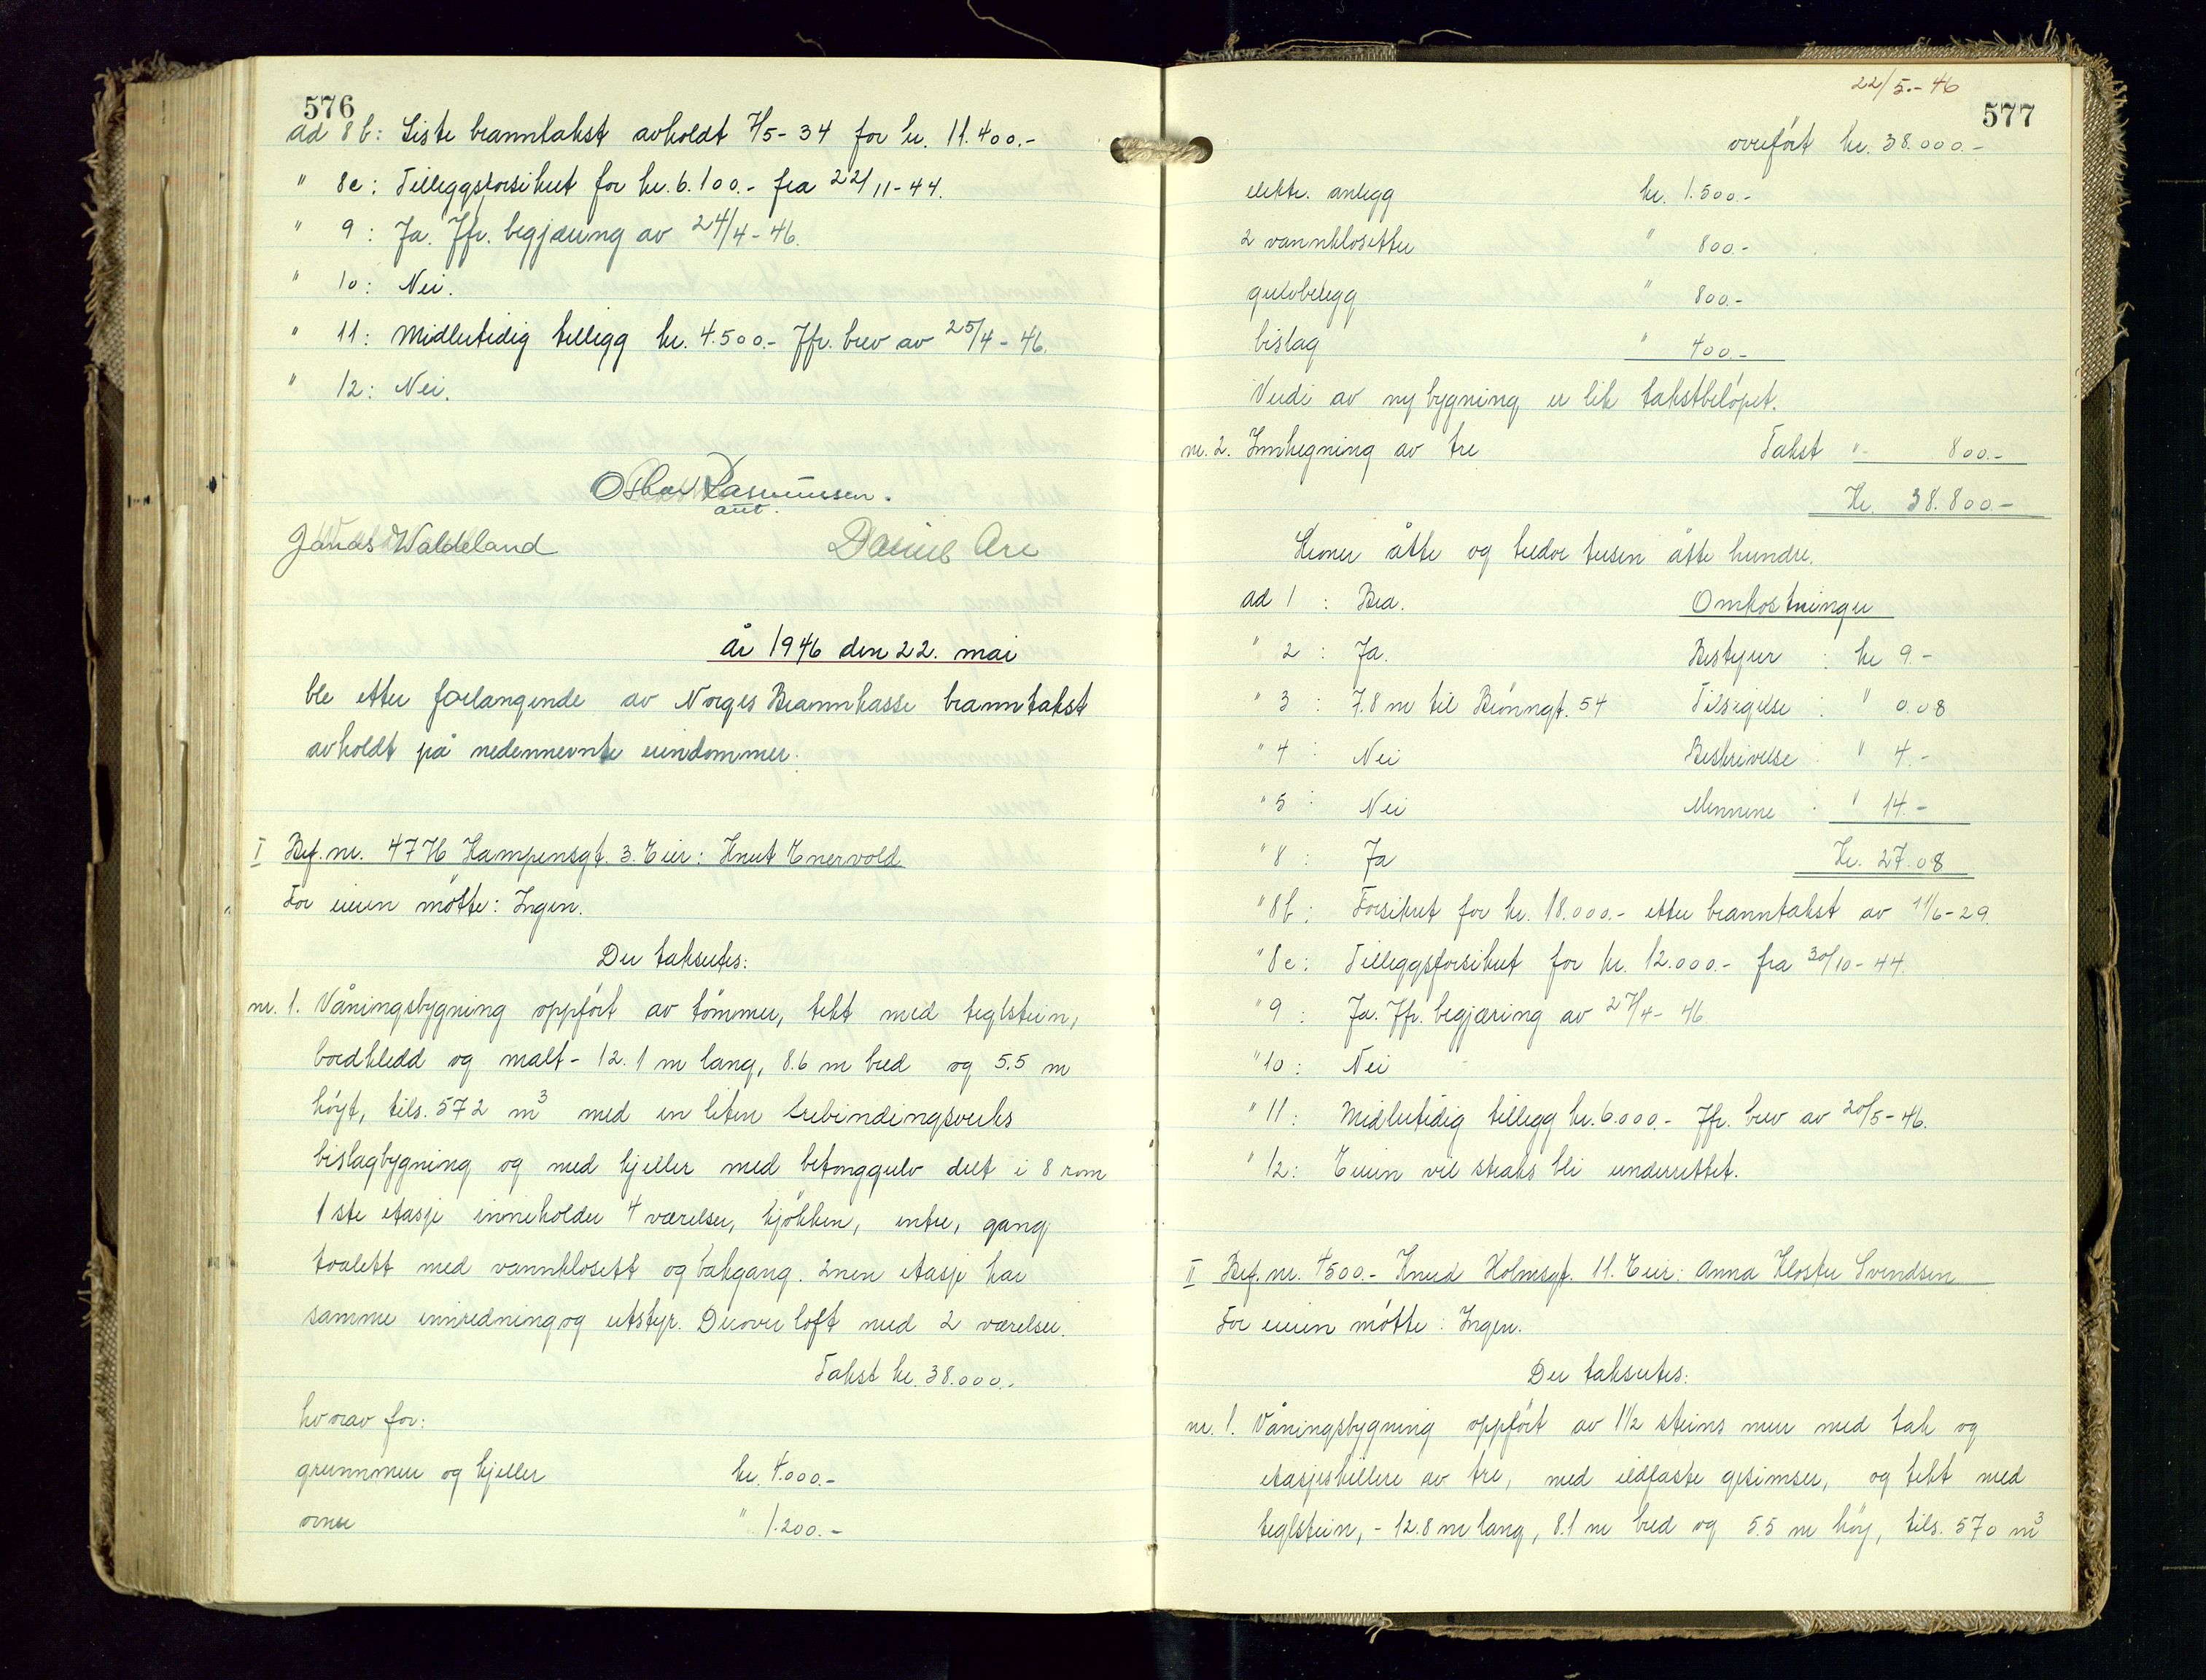 576
ad 8 b: Siste branntakst avholdt 7/5-34 for kr. 11.400.-
" 8c: Tilleggsforsikret for kr. 6.100.- fra 22/11-44.
" 9: Ja. Jfr. begjæring av 24/4-46.
" 10: Nei.
" 11: Midlertidig tillegg kr. 4.500.- Jfr. brev av 25/4-46.
" 12: Nei.
Oskar Rasmussen.
aut.
Jonas Waldeland Daniel Are
år 1946 den 22. mai
ble etter forlangende av Norges Brannkasse branntakst
avholdt på nedennevnte eiendommer:
I Bef. nr. 4776 Kampensgt. 3. Eier: Knut Enervold
For eieren møtte: Ingen.
Der takseres:
nr. 1. Våningsbygning oppført av tømmer, tekt med teglstein,
bordkledd og malt - 12.1 m lang, 8.6 m bred og 5.5 m
høyt, tils. 572 m3 med en liten trebindingsverks
bislagbygning og med kjeller med betonggulv delt i 8 rom
1ste etasje inneholder 4 værelser, kjøkken, entre, gang,
toalett med vannklosett og bakgang. 2nen etasje har
samme innredning og utstyr. Derover loft med 2 værelser.
Takst kr. 38.000.-
hvorav for:
grunnmur og kjeller kr. 4.000.-
ovner " 1.200.-
22/5.-46
577
overført kr. 38.000.-
elektr. anlegg kr. 1.500.-
2 vannklosetter " 800.-
gulvbelegg " 800.-
bislag " 400.-
Verdi av ny bygning er lik takstbeløpet.
nr. 2. Innhegning av tre Takst " 800.-
Kr. 38.800.-
Kroner åtte og tredve tusen åtte hundre.
ad 1 : Bra. Omkostninger
" 2 : Ja. Bestyrer : kr 9.-
" 3 : 7.8 m til Brönngt. 54 Tilsigelse : " 0.08
" 4 : Nei Beskrivelse : " 4.-
" 5 : Nei Mennene : " 14.-
" 8 : Ja Kr. 27.08
" 8b : Forsikret for kr. 18.000.- etter branntakst av 11/6-29.
" 8c : Tilleggsforsikret for kr. 12.000.- fra 30/10-44.
" 9 : Ja. Jfr. begjæring av 27/4-46
" 10 : Nei
" 11 : Midlertidig tillegg kr. 6.000.- Jfr. brev av 20/5-46.
" 12: Eieren vil straks bli underrettet.
II Bef. nr. 4500.- Knud Holmsgt. 11. Eier: Anna Kloster Svendsen
For eieren møtte : Ingen.
Der takseres:
nr. 1. Våningsbygning oppført av 1½ steins mur med tak og
etasjeskillere av tre, med ildfaste gesimser, og tekt med
teglstein, - 12.8 m lang, 8.1 m bred og 5.5 m høy, tils. 570 m3